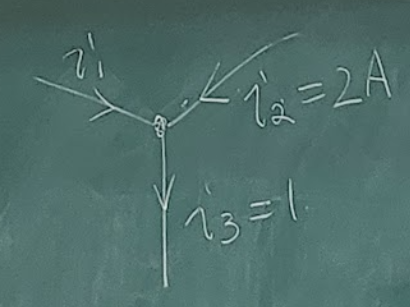 i₁
i₂=2A
i₃=1.